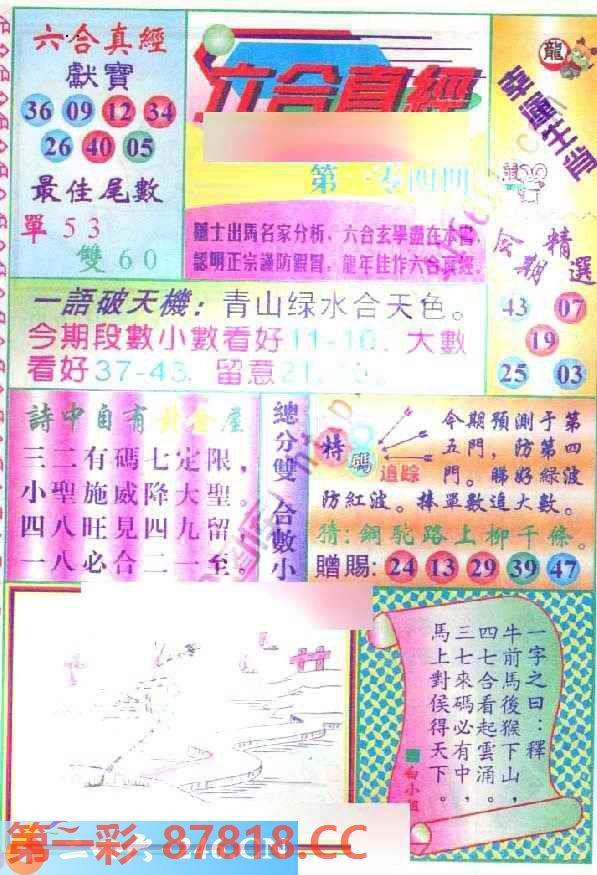 六合真經
獻寶
36 09 12 34
26 40 05
最佳尾數
單 5 3
雙 6 0
六合真經
龍
幸運生肖
認明正宗謹防假冒,龍年佳作六合真經.
精選
43 07
19
25 03
一語破天機: 青山绿水合天色。
今期段數小數看好11-16. 大數
看好37-43. 留意
詩中自有黃金屋
三二有碼七定限,
小聖施威降大聖。
四八旺見四九留;
一八必合二一至。
總分雙 合數小
特碼
追踪
今期預測于第
五門,防第四
門。睇好綠波
防紅波。捧單數追大數。
猜:銅駝路上柳千條。
贈賜: 24 13 29 39 47
一字之曰:釋
牛前馬後猴下山,
四七合看起雲涌。
三七來碼必有中,
馬上對侯得天下。
第一彩 87818.CC